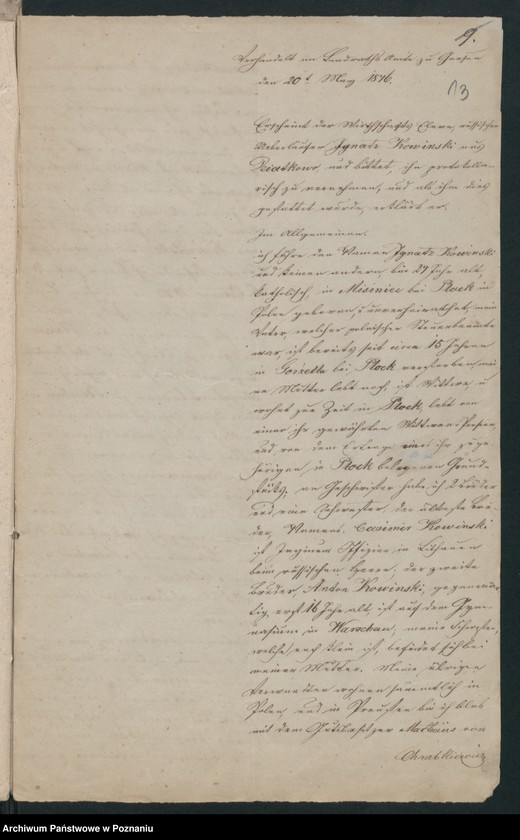 19.
13
Verhandelt im Landraths Amte zu Gnesen
den 20t May 1846.
Erscheint der Wirthschafts Eleve, russischer
Ueberläufer Ignatz Kowinski aus
Dziatkowo, und bittet, ihn protokolla-
risch zu vernehmen, und als ihm dies
gestattet wurde, erklärt er.
Im Allgemeinen.
ich führe den Namen Ignatz Kowinski
und keinen andern, bin 29 Jahr alt,
katholisch, in Misinice bei Plock in
Polen geboren, unverheirathet, mein
Vater, welcher polnischer Steuerbeamte
war, ist bereits seit circa 15 Jahren
in bei Plock verstorben, mei-
ne Mutter lebt noch, ist Wittwe u
wohnt zur Zeit in Plock, lebt von
einer ihr gewährten Wittwen Pension,
und von dem Ertrage eines ihr zuge-
hörigen, in Plock belegenen Grund-
stücks. an Geschwister habe ich 2 Brüder
und eine Schwester, der älteste Bru-
der, Namens Casimir Kowinski
ist Ingineur Offizier in Lithauen
beim russischen Heere, der zweite
Bruder, Anton Kowinski, gegenwär-
tig erst 16 Jahr alt, ist auf dem Gym-
nasium in Warschau, meine Schwester,
welche noch klein ist, befindet sich bei
meiner Mutter. Meine übrigen
Verwandten wohnen sämmtlich in
Polen und in Preußen bin ich blos
mit dem Gutsbesitzer Mathäus von
Chrabkiewicz
Archiwum Państwowe w Poznaniu